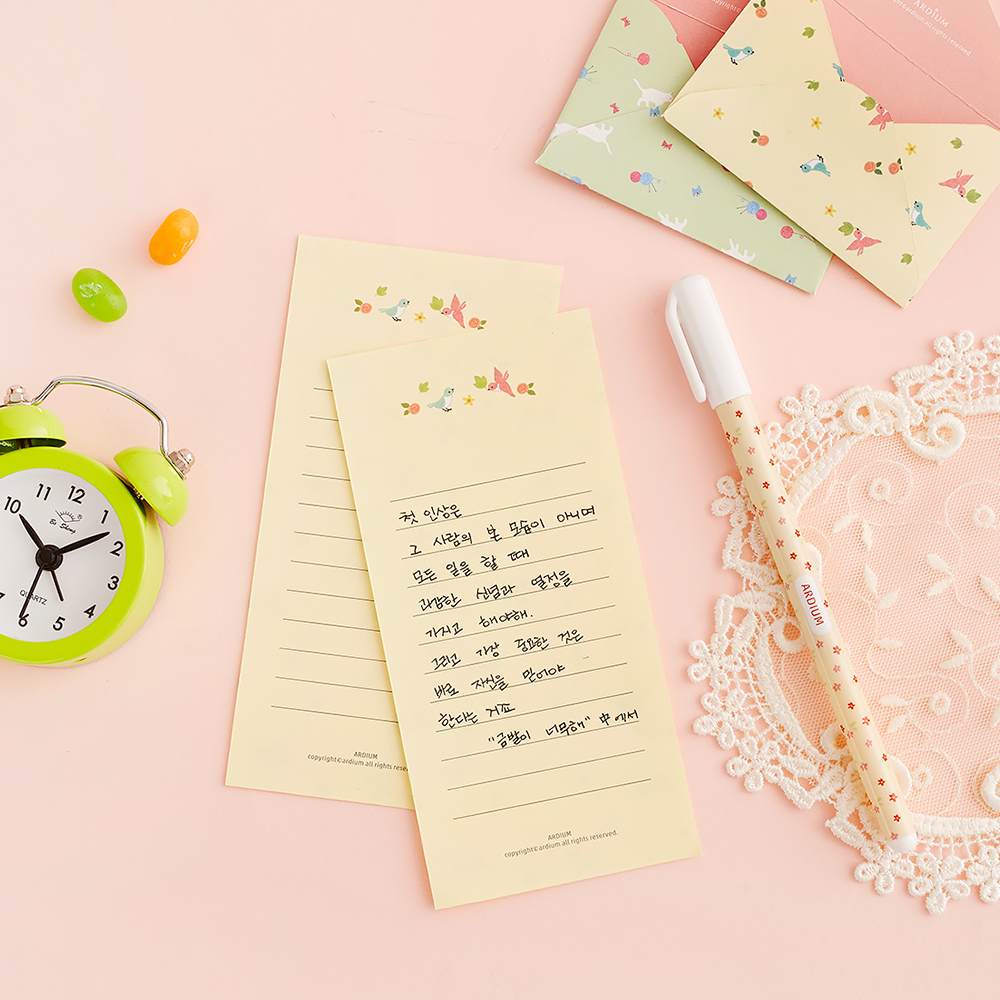 ARDIUM
copyright©ardium all rights reserved.
11
12
1
10
2
3
4
5
6
QUARTZ
첫 인상은
그 사람의 본 모습이 아니며
모든 일을 할 때
과감한 신념과 열정을
가지고 해야해.
그리고 가장 중요한 것은
바로 자신을 믿어야
한다는 거죠
"금발이 너무해" 中에서
ARDIUM
copyright©ardium all rights
ARDIUM
copyright©ardium all rights reserved.
ARDIUM